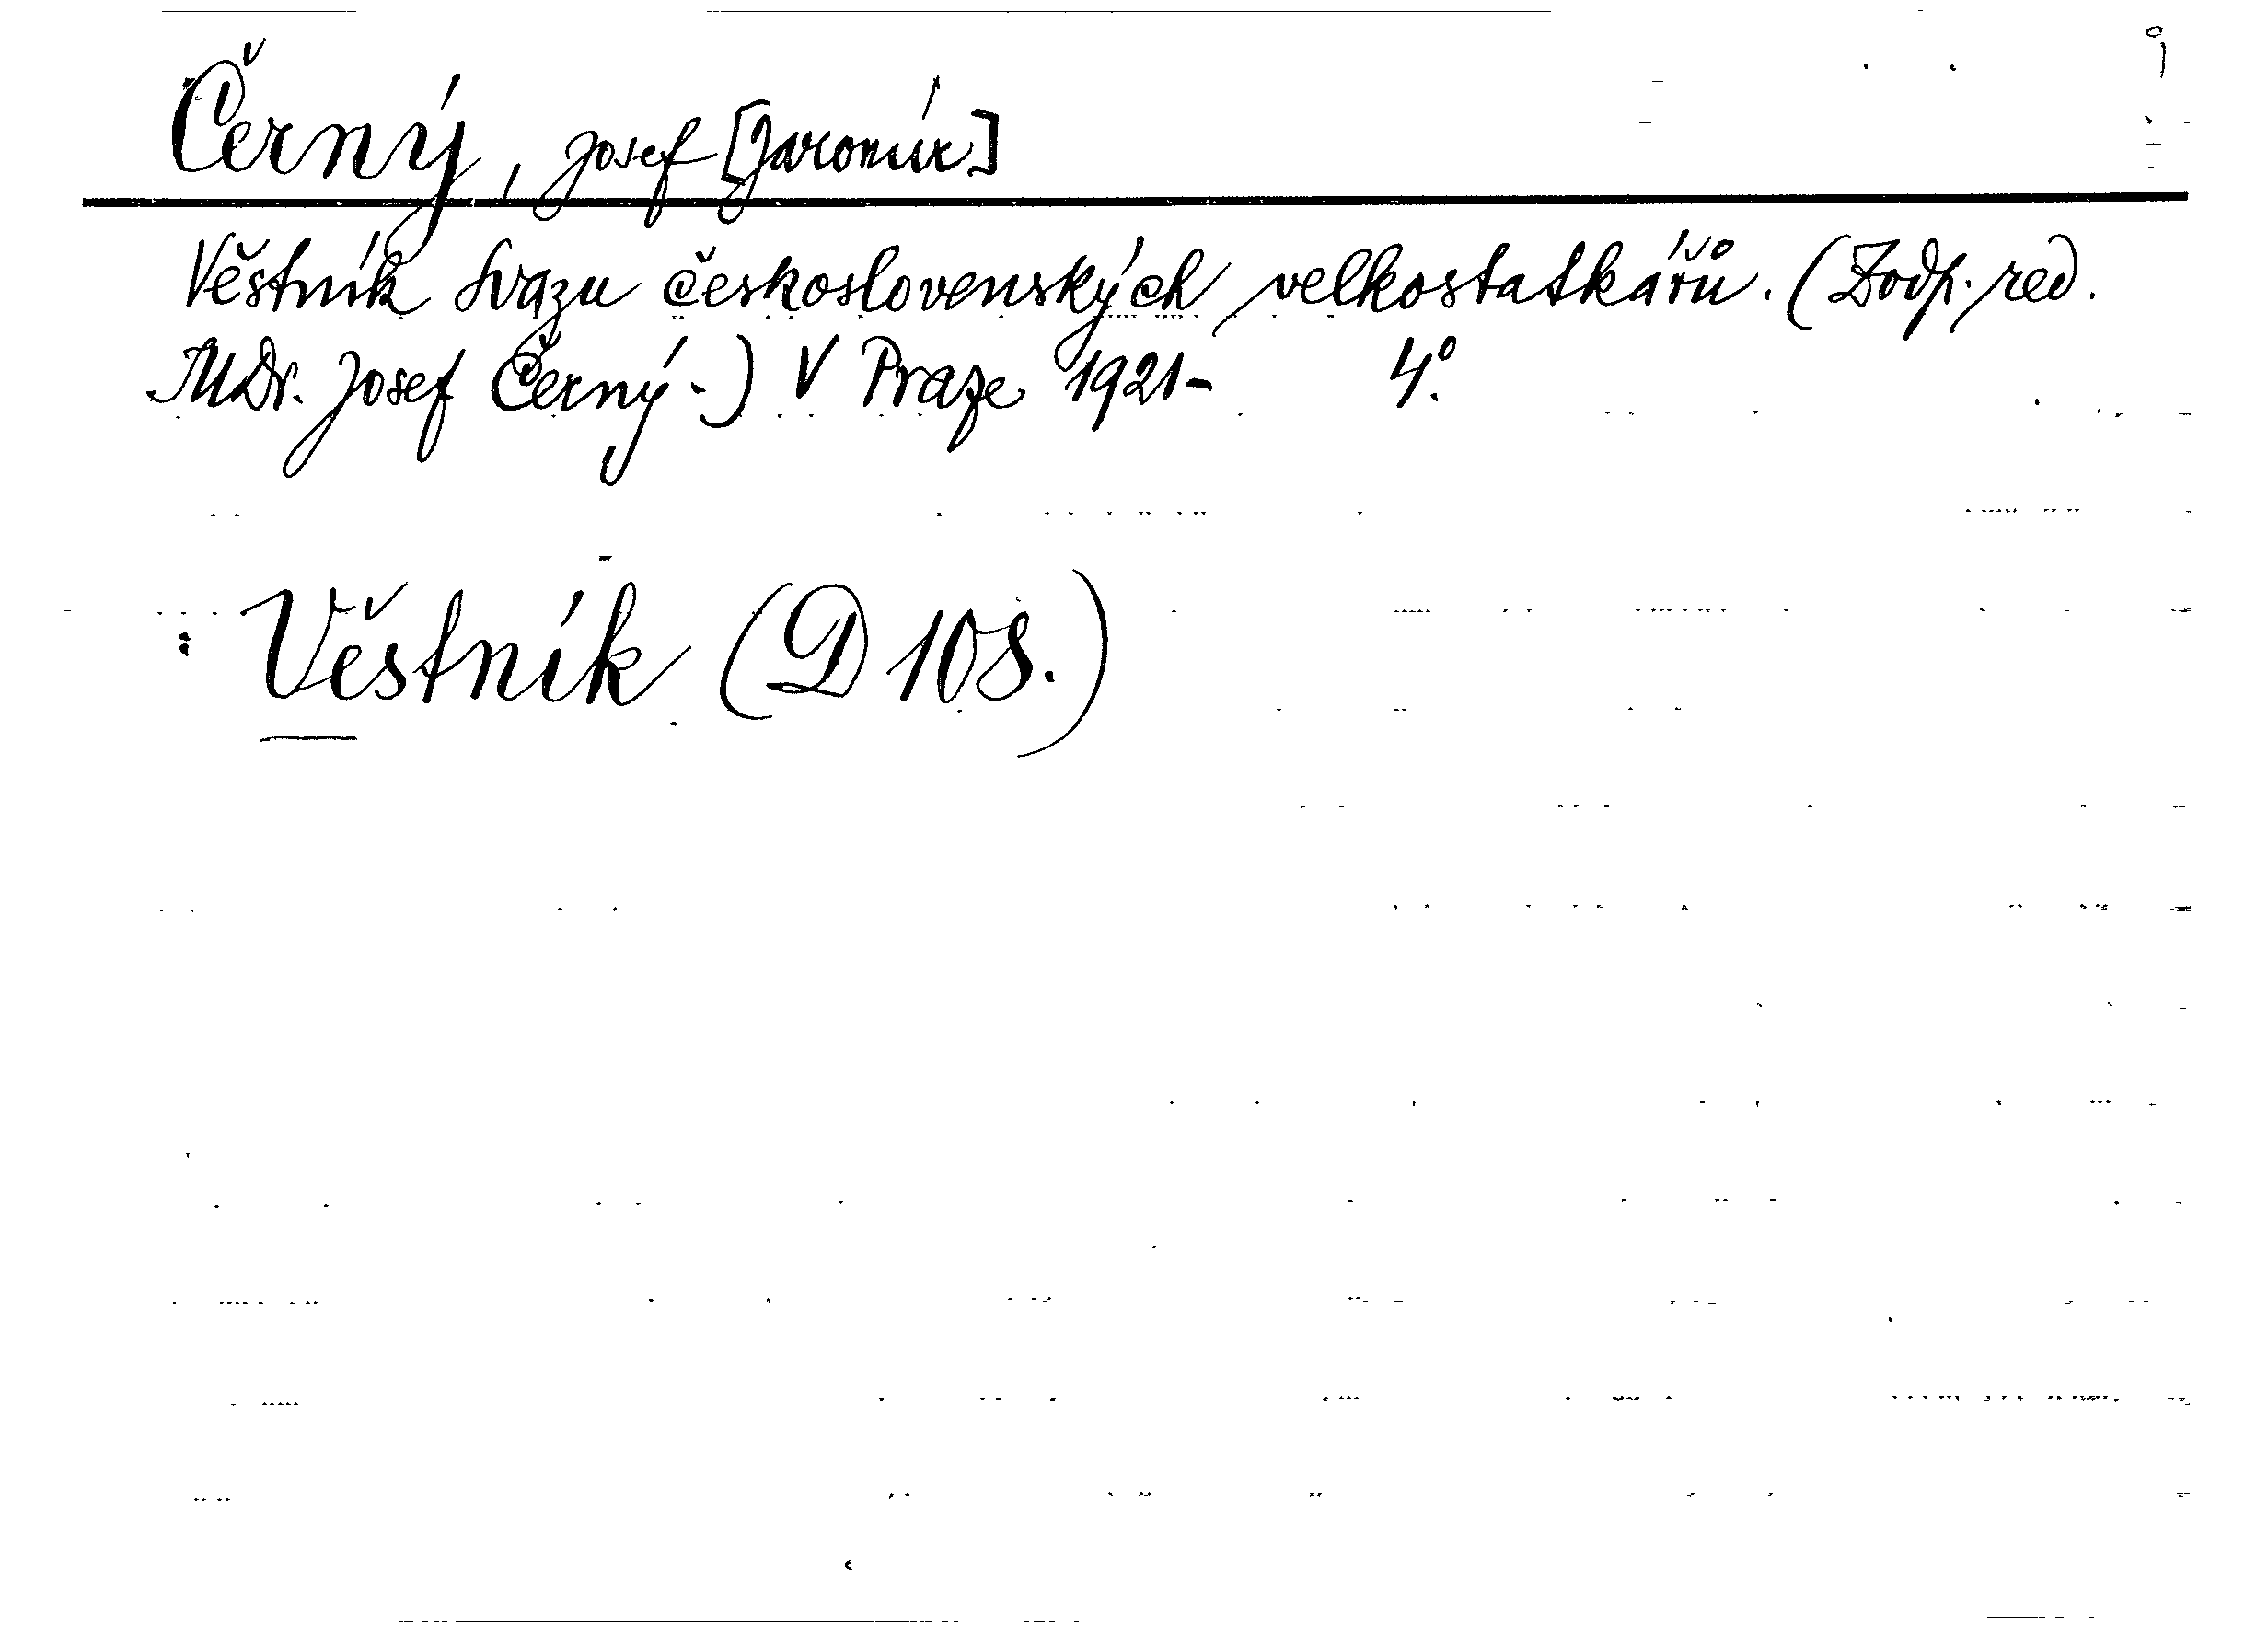 9
Černý, Josef [Jaromír]
Věstník svazu československých velkostatkářů. (Zodp. red.
MDr. Josef Černý.) V Praze 1921- 4°.
Věstník (D 108.)